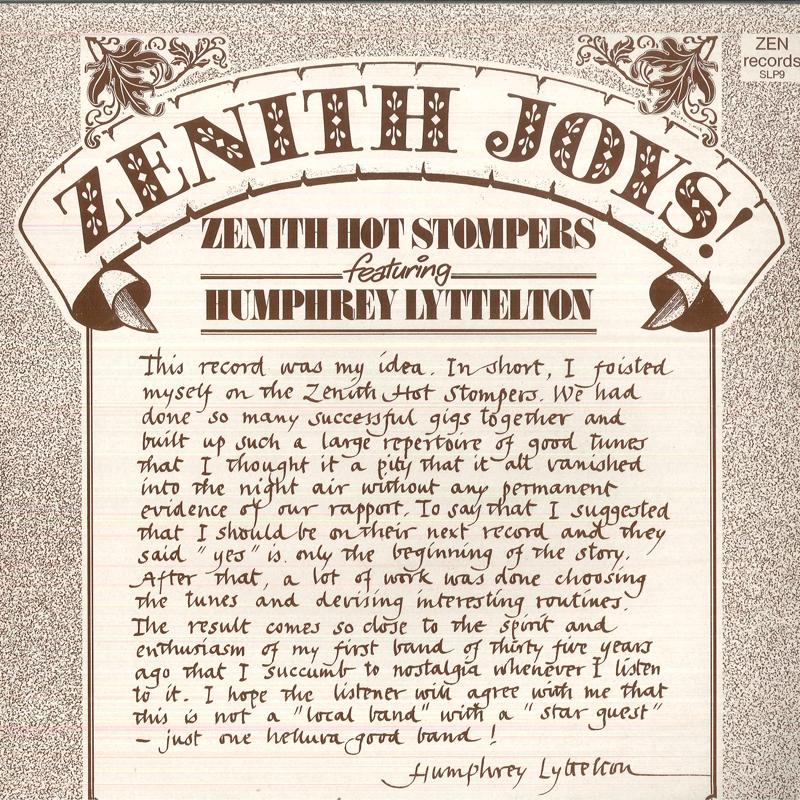 ZEN
records
SLP9
ZENITH JOYS!
ZENITH HOT STOMPERS
featuring
HUMPHREY LYTTELTON
This record was my idea. In short, I foisted
myself on the Zenith Hot Stompers. We had
done so many successful gigs together and
built up such a large repertoire of good tunes
that I thought it a pity that it all vanished
into the night air without any permanent
evidence of our rapport. To say that I suggested
that I should be on their next record and they
said "yes" is only the beginning of the story.
After that, a lot of work was done choosing
the tunes and devising interesting routines.
The result comes so close to the spirit and
enthusiasm of my first band of thirty five years
ago that I succumb to nostalgia whenever I listen
to it. I hope the listener will agree with me that
this is not a "local band" with a "star guest"
– just one helluva good band!
Humphrey Lyttelton